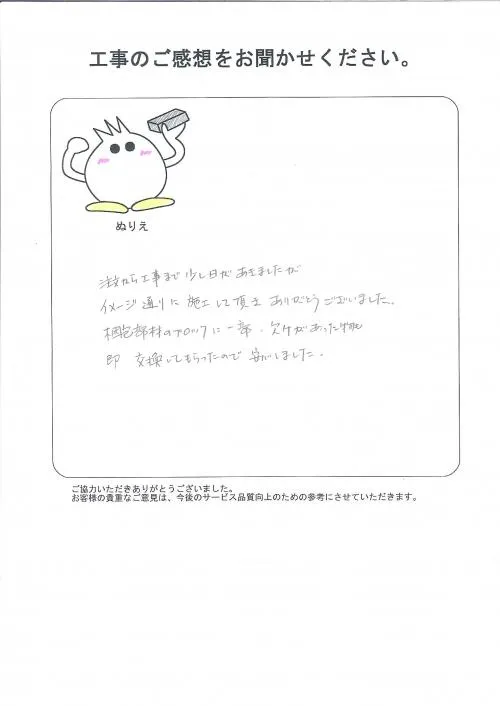 工事のご感想をお聞かせください。
ぬりえ
注文から工事まで少し日があきましたが
イメージ通りに施工して頂きありがとうございました。
梱包部材のブロックに一部、欠けがあった物も
即 交換してもらったので安心しました。
ご協力いただきありがとうございました。
お客様の貴重なご意見は、今後のサービス品質向上のための参考にさせていただきます。